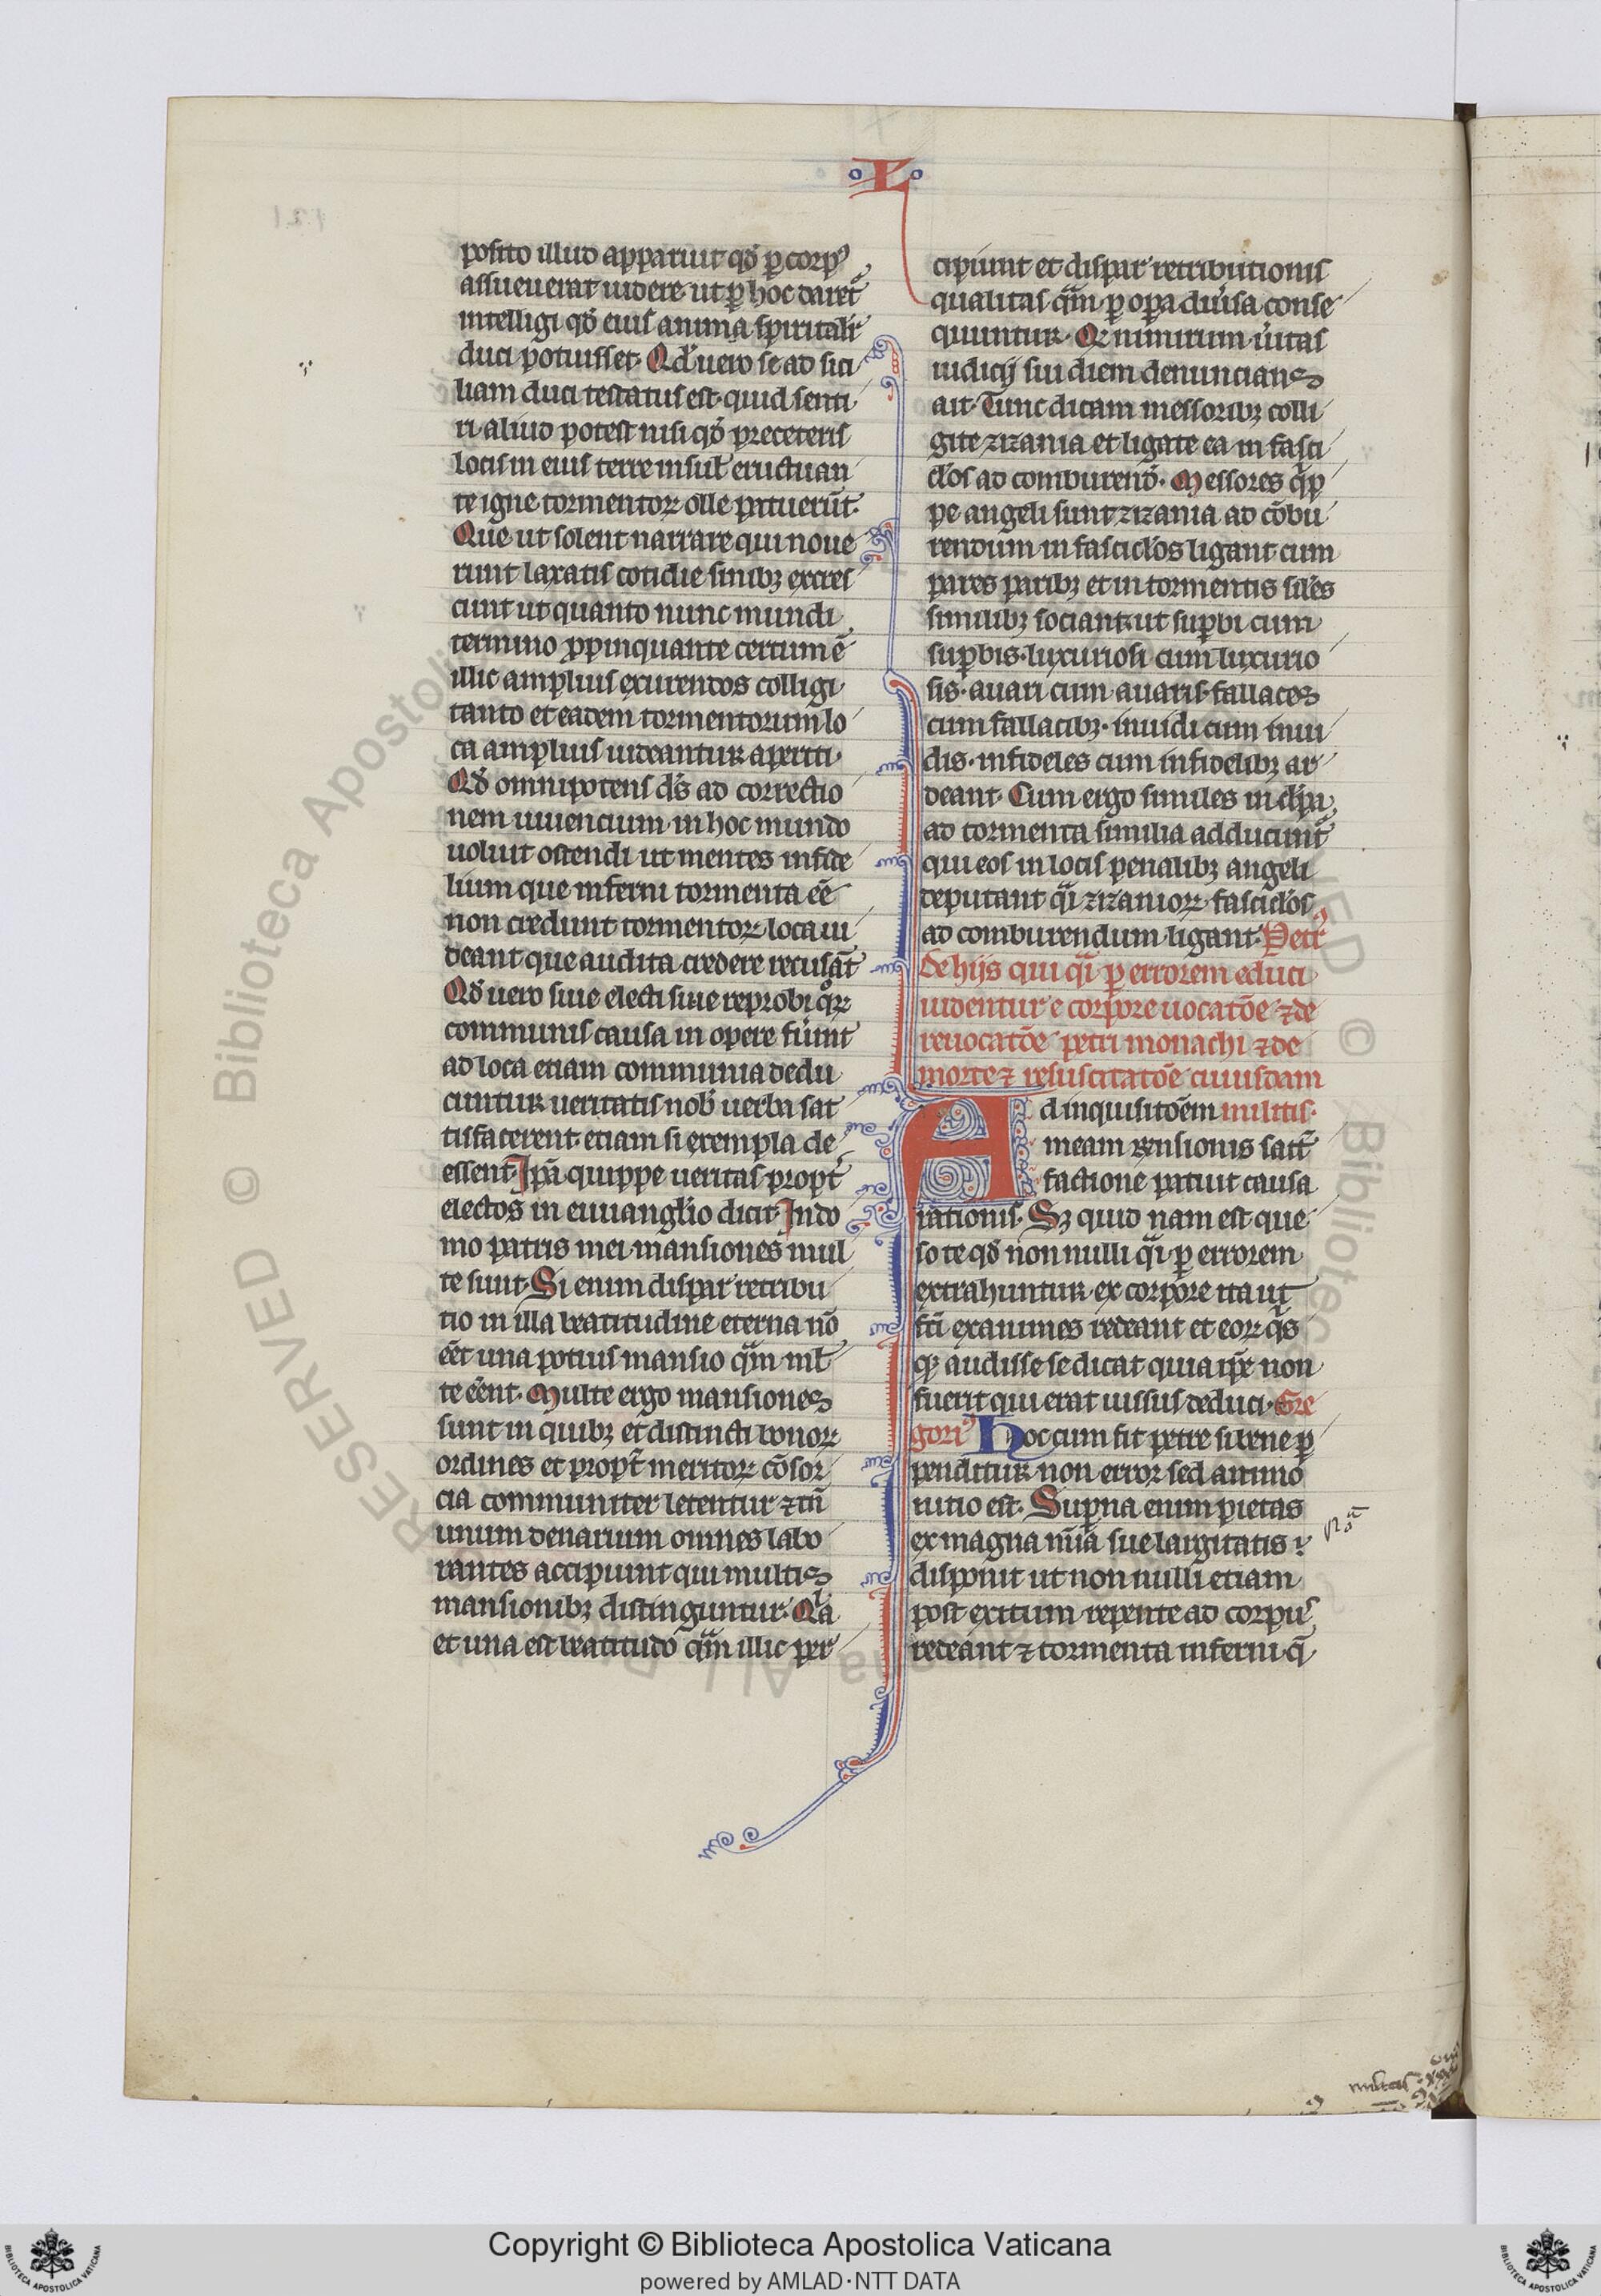 L
posito illud apparuit qd̄ ꝑ corpꝰ
assueuerat uidere ut ꝑ hoc daret᷑
intelligi qd̄ eius anima spiritalit᷑
duci potuisset. Qd̓ uero se ad sici
liam duci testatus est. quid senti
ri aliud potest nisi qd̄ pre ceteris
locis in eius terre insul̓ eructuan
te igne tormentoꝝ olle patuerūt.
Que ut solent narrare qui noue
runt laxatis cotidie sinibꝫ excres
cunt ut quanto nunc mundi
termino ꝓpinquante certum ē
illic amplius exurendos colligi
tanto et eadem tormentorum lo
ca amplius uideantur aperiri.
Qd̓ omnipotens ds̄ ad correctio
nem uiuencium in hoc mundo
uoluit ostendi ut mentes infide
lium que inferni tormenta eē
non credunt tormentoꝝ loca ui
deant que audita credere recusāt
Qd̓ uero siue electi siue reprobi qͦꝝ
communis causa in opere fuīnt
ad loca etiam communia dedu
cuntur ueritatis nob̄ uerba sat
tisfacerent. etiam si exempla de
essent. Ip̄a quippe ueritas propt̄
electos in euuangl̓io dicit. In do
mo patris mei mansiones mul
te sunt. Si enim dispar retribu
tio in illa beatitudine eterna nō
eēt una potius mansio qͣm ml̓
te eēnt. Multe ergo mansiones
sunt in quibꝫ et distincti bonoꝝ
ordines et propt̄ meritoꝝ cōsor
cia communiter letentur ⁊ tn̄
unum denarium omnes labo
rantes accipiunt qui multis
mansionibꝫ distinguntur. Qͥa
et una est beatitudo qͣm illic per
cipiunt et dispar retributionis
qualitas qͣm ꝑ oꝑa diu̓sa conse
quuntur. Qͦ nimirum u̓itas
iudicij sui diem denuncians
ait. Tunc dicam messoribꝫ colli
gite zizania et ligate ea in fasci
cl̓os ad comburend̓. Messores qͥp
pe angeli sunt zizania ad cōbu
rendum in fascicl̓os ligant cum
pares paribꝫ et in tormentis sil̓es
similibꝫ sociant. ut suꝑbi cum
suꝑbis. luxuriosi cum luxurio
sis. auari cum auaris. fallaces
cum fallacibꝫ. inuidi cum inui
dis. infideles cum infidelibꝫ ar
deant. Cum ergo similes in cl̓pa
ad tormenta similia adducunt᷑
qui eos in locis penalibꝫ angeli
deputant qͣi zizanioꝝ fascicl̓os
ad comburendum ligant. Petrꝰ
De hijs qui qͣi ꝑ errorem educi
uidentur e corpore uocatōe ⁊ de
reuocatōe petri monachi ⁊ de
morte ⁊ resuscitatōe cuiusdam
Ad inquisitōem militis.
meam rn̄sionis satt᷑
factione patuit causa
rationis. Sꝫ quid nam est que
so te qd̄ non nulli qͣi ꝑ errorem
extrahuntur ex corpore ita ut
fc̄i exanimes redeant et eoꝝ qͥs
qͣꝫ audisse se dicat quia ip̄e non
fuerit qui erat uissus deduci. Gre
goriꝰ Hoc cum fit petre si bene ꝑ
penditur non error sed ammo
nitio est. Suꝑna enim pietas
ex magna mīa sue largitatis
disponit ut non nulli etiam
post exitum repente ad corpus
redeant ⁊ tormenta inferni q̄
Copyright © Biblioteca Apostolica Vaticana
powered by AMLAD·NTT DATA